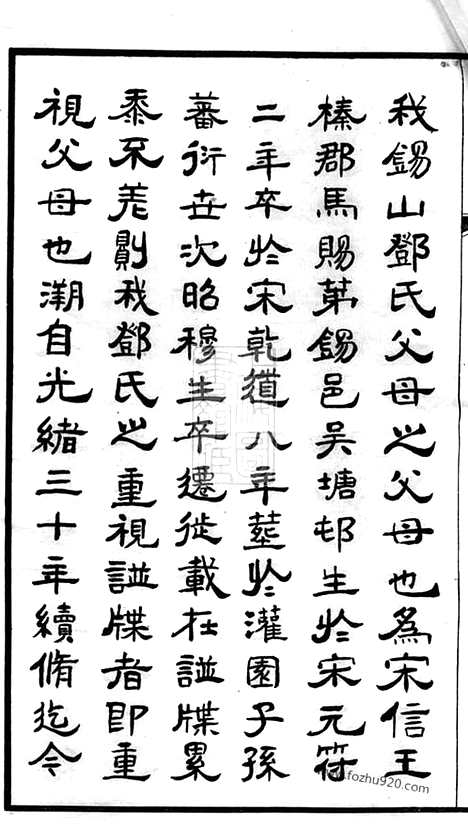 我錫山鄧氏父母之父母也為宋信王
榛郡馬賜第錫邑吳塘邨生於宋元符
二年卒於宋乾道八年葬於灌園子孫
蕃衍世次昭穆生卒遷徙載在譜牒累
黍不差則我鄧氏之重視譜牒者即重
視父母也溯自光緒三十年續脩迄今
www.fozhu920.com